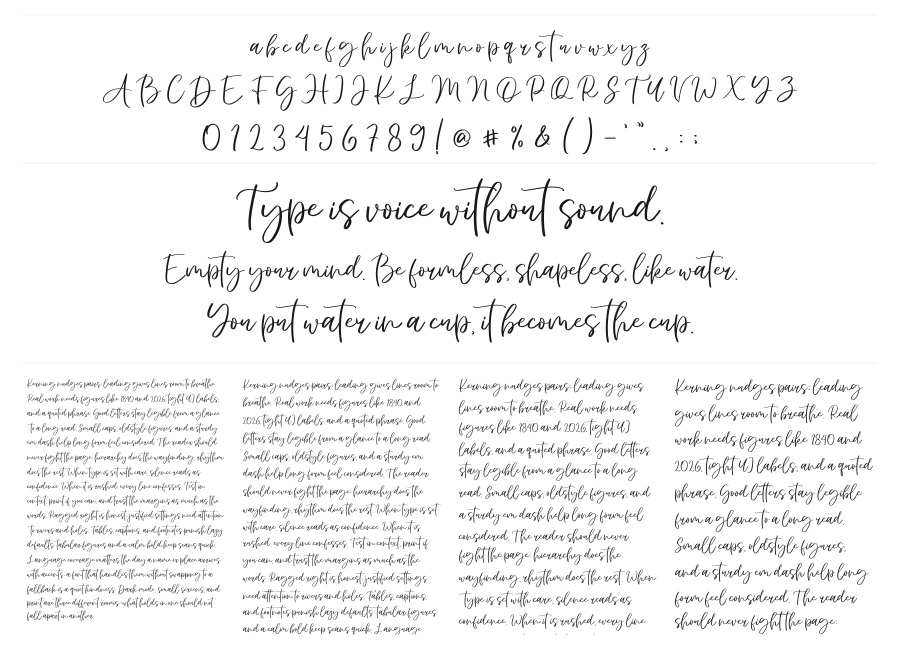 abcdefghijklmnopqrstuvwxyz
ABCDEFGHIJKLMNOPQRSTUVWXYZ
0123456789!@#%&()-'".,:;
Type is voice without sound.
Empty your mind. Be formless, shapeless, like water.
You put water in a cup, it becomes the cup.
Kerning nudges pairs; leading gives lines room to breathe.
Real work needs figures like 1840 and 2026, tight UI labels,
and a quoted phrase. Good letters stay legible from a glance
to a long read. Small caps, oldstyle figures, and a sturdy
em dash help long form feel considered. The reader should
never fight the page; hierarchy does the wayfinding, rhythm
does the rest. When type is set with care, silence reads as
confidence. When it is rushed, every line confesses. Test in
context, print if you can, and trust the margins as much as the
words. Ragged right is honest; justified settings need attention
to rivers and holes. Tables, captions, and footnotes punish lazy
defaults. Tabular figures and a calm bold keep scans quick.
Language coverage matters the day a name or place arrives
with accents; a font that handles them without swapping to a
fallback is a quiet kindness. Dark mode, small screens, and
print are three different rooms; what holds in one should not
fall apart in another.
Kerning nudges pairs; leading gives lines room to
breathe. Real work needs figures like 1840 and
2026, tight UI labels, and a quoted phrase. Good
letters stay legible from a glance to a long read.
Small caps, oldstyle figures, and a sturdy em
dash help long form feel considered. The reader
should never fight the page; hierarchy does the
wayfinding, rhythm does the rest. When type is set
with care, silence reads as confidence. When it is
rushed, every line confesses. Test in context, print if
you can, and trust the margins as much as the
words. Ragged right is honest; justified settings
need attention to rivers and holes. Tables, captions,
and footnotes punish lazy defaults. Tabular figures
and a calm bold keep scans quick. Language
Kerning nudges pairs; leading gives
lines room to breathe. Real work needs
figures like 1840 and 2026, tight UI
labels, and a quoted phrase. Good letters
stay legible from a glance to a long
read. Small caps, oldstyle figures, and
a sturdy em dash help long form feel
considered. The reader should never
fight the page; hierarchy does the
wayfinding, rhythm does the rest. When
type is set with care, silence reads as
confidence. When it is rushed, every line
Kerning nudges pairs; leading
gives lines room to breathe. Real
work needs figures like 1840 and
2026, tight UI labels, and a quoted
phrase. Good letters stay legible
from a glance to a long read.
Small caps, oldstyle figures,
and a sturdy em dash help long
form feel considered. The reader
should never fight the page;